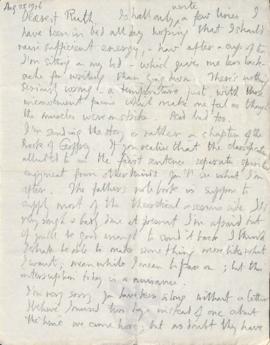 Aug 25 1916
write
Dearest Ruth, I shall only a few lines I
have been in bed all day hoping that I should
raise sufficient energy, & now after a cup of tea
I'm sitting on my bed - which give me less back
ache for writing than lying down. There's nothing
serious wrong - a temperature just with those
movement pains which make me feel as though
the muscles were on strike. And head too.
I'm sending the story or rather a chapter of the
Book of Geoffrey. If you realise that the classification
alluded to in the first sentence separates special
enjoyment from other kinds you'll see what I'm
after. The father's note book is supposed to
supply most of the theoretical & serious side. It's
very rough & badly done at present I'm afraid but
if you'll be good enough to send it back I think
I shall be able to make something more like what
I want; meanwhile I mean to push on; but this
interruption today is a nuisance.
I'm very sorry you have been so long without a letter.
I believe I missed two days instead of one about
the time we came here; but no doubt they have